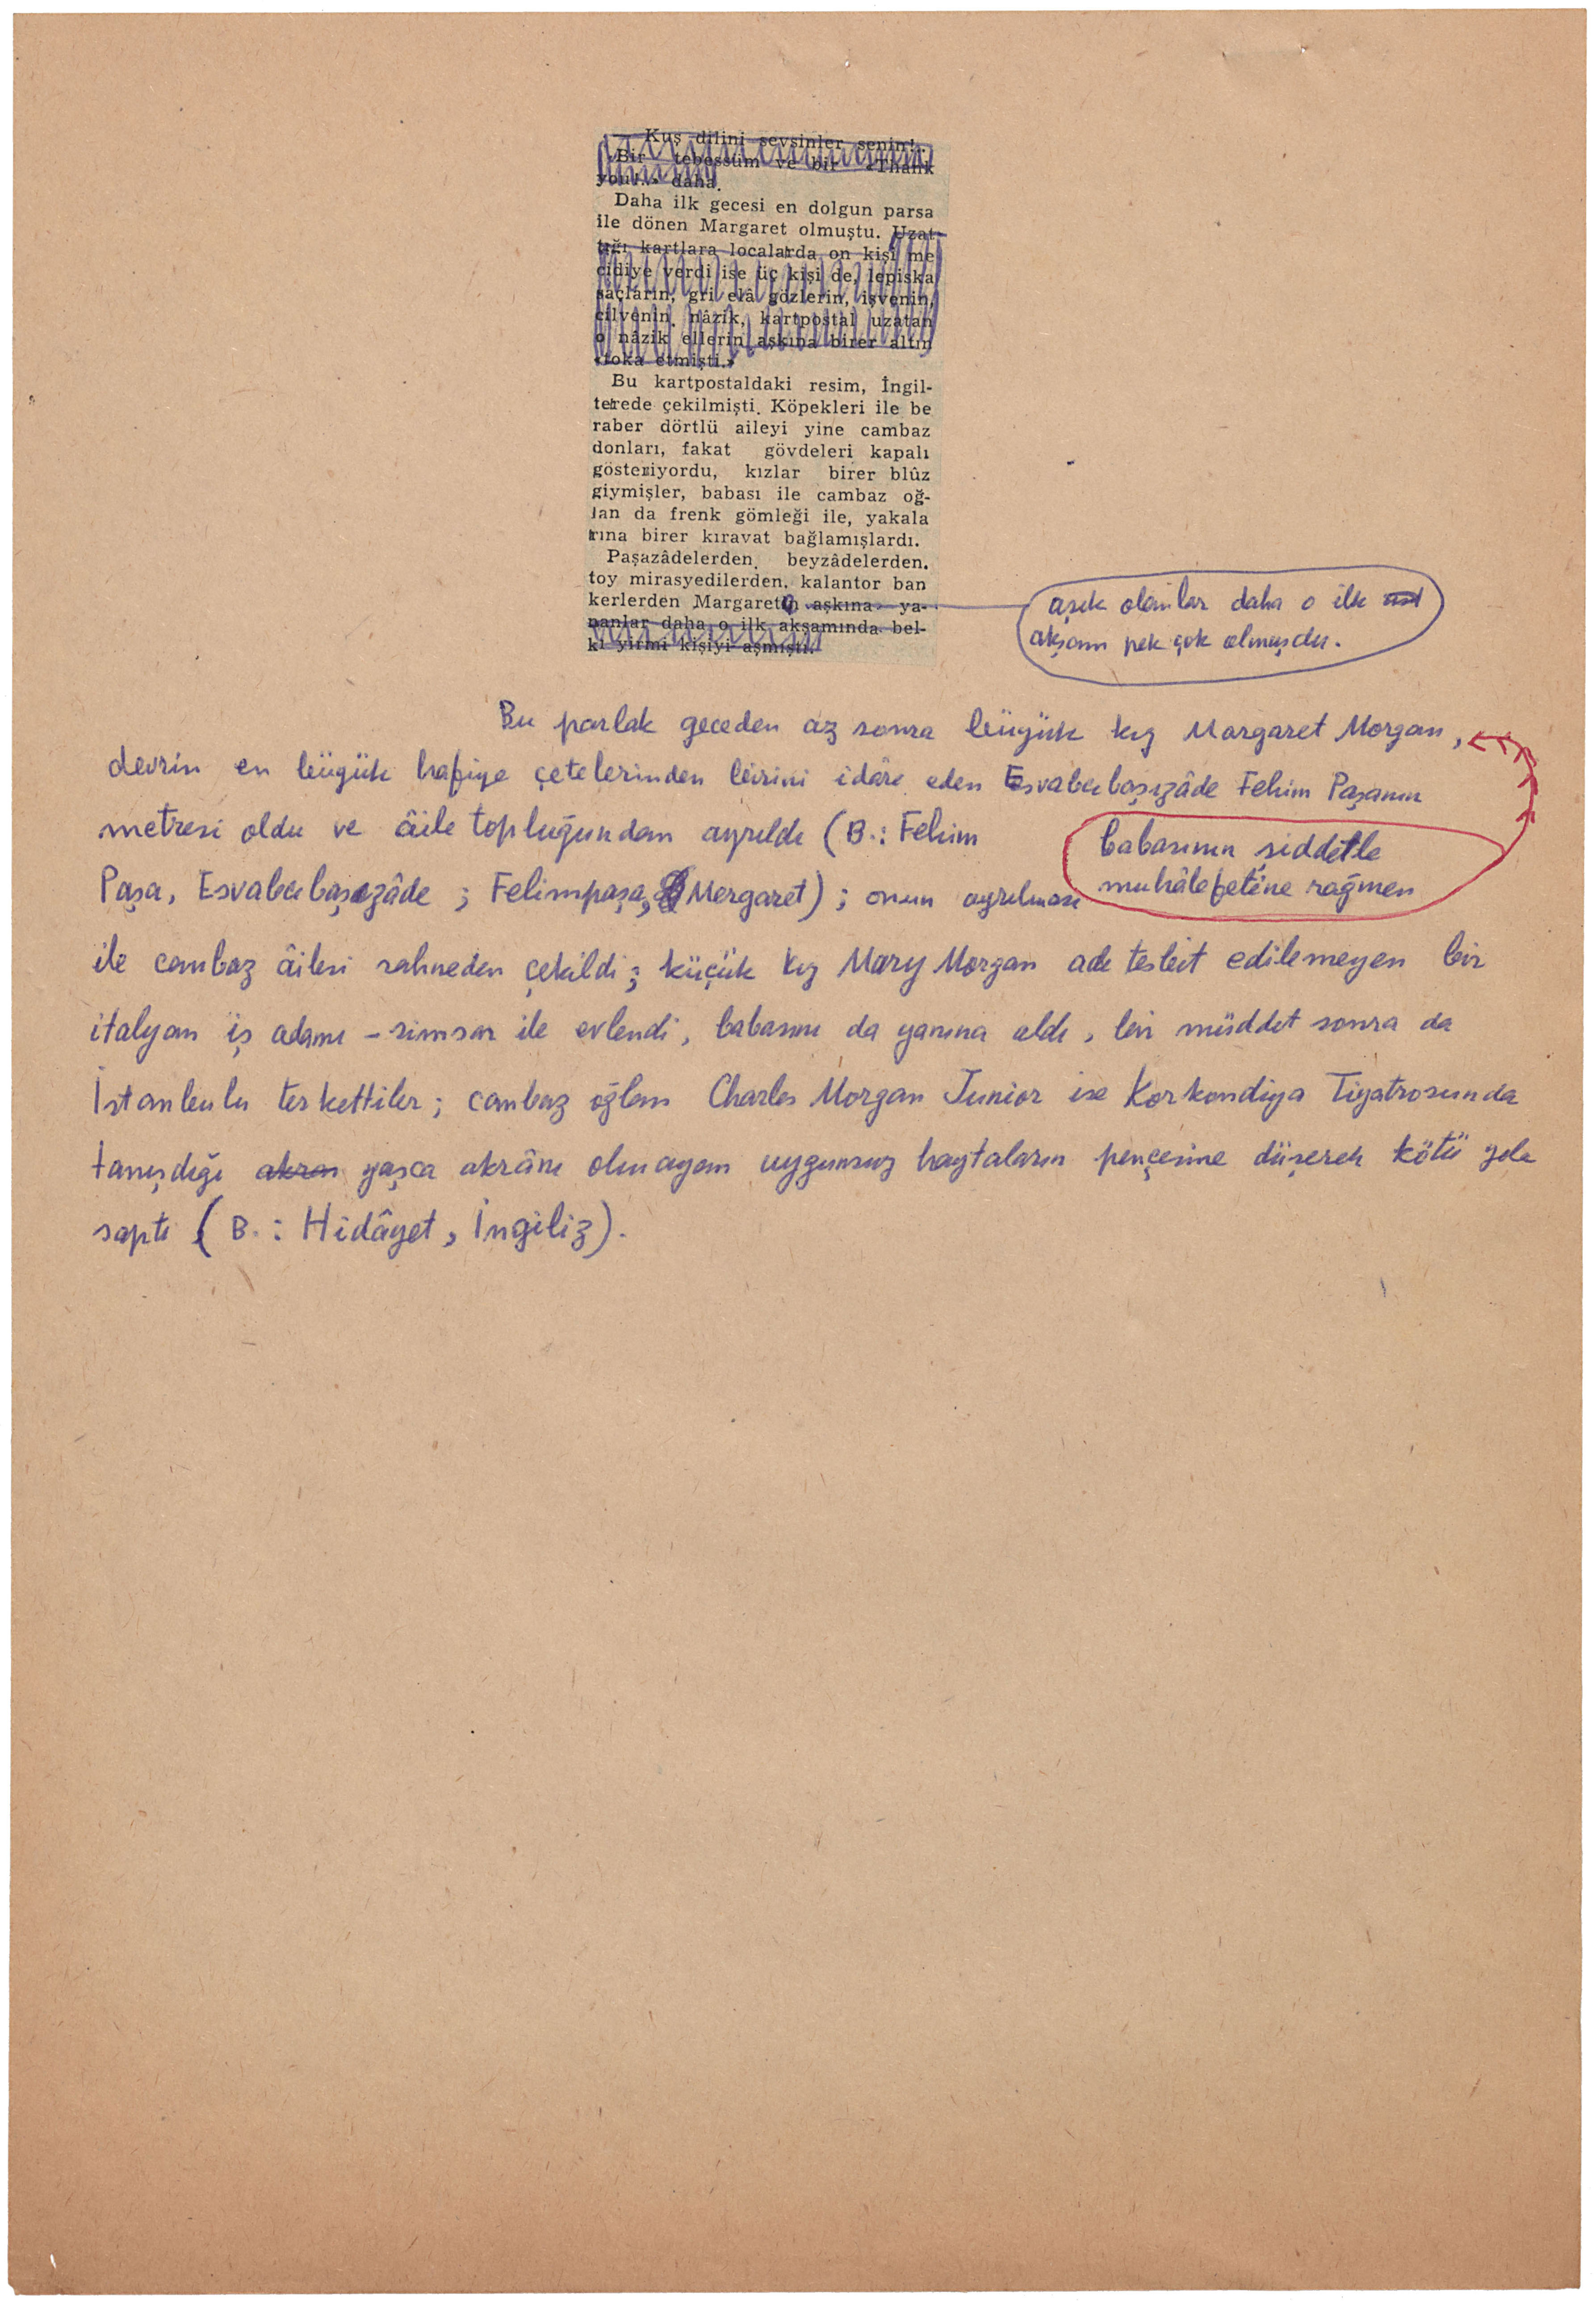 — Kuş dilini sevsinler senin!..
Bir tebessüm ve bir «Thank
you!..» daha.
Daha ilk gecesi en dolgun parsa
ile dönen Margaret olmuştu. Uzat-
tığı kartlara localarda on kişi me
cidiye verdi ise üç kişi de, lepiska
saçların, gri elâ gözlerin, işvenin,
cilvenin, nâzik, kartpostal uzatan
o nâzik ellerin aşkına birer altın
«toka etmişti.»
Bu kartpostaldaki resim, İngil-
terede çekilmişti. Köpekleri ile be
raber dörtlü aileyi yine cambaz
donları, fakat gövdeleri kapalı
gösteriyordu, kızlar birer blûz
giymişler, babası ile cambaz oğ-
lan da frenk gömleği ile, yakala
rına birer kıravat bağlamışlardı.
Paşazâdelerden, beyzâdelerden,
toy mirasyedilerden, kalantor ban
kerlerden Margaretin aşkına ya-
nanlar daha o ilk akşamında bel-
ki yirmi kişiyi aşmıştı.
aşık olanlar daha o ilk
akşam pek çok olmuşdu.
Bu parlak geceden az sonra büyük kız Margaret Morgan,
devrin en büyük hafiye çetelerinden birini idâre eden Esvabcıbaşızâde Fehim Paşanın
metresi oldu ve âile topluğundan ayrıldı (B.: Fehim
babasının şiddetle
muhâlefetine rağmen
Paşa, Esvabcıbaşızâde ; Fehimpaşa, Mergaret) ; onun ayrılması
ile cambaz âilesi sahneden çekildi ; küçük kız Mary Morgan adı tesbit edilemeyen bir
italyan iş adamı - simsar ile evlendi, babasını da yanına aldı, bir müddet sonra da
İstanbulu terkettiler ; cambaz oğlan Charles Morgan Junior ise Korkondiya Tiyatrosunda
tanışdığı akran yaşca akrânı olmayan uygunsuz haytaların pençesine düşerek kötü yola
saptı (B. : Hidâyet, İngiliz).